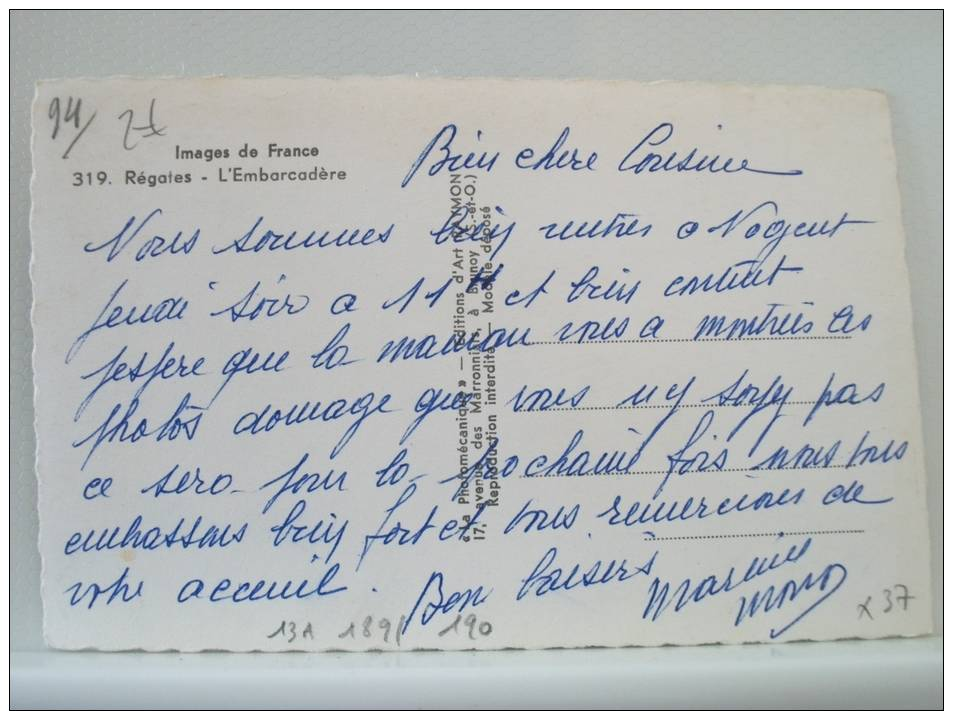 94/
Images de France
319. Régates - L'Embarcadère
Bien chere Cousine
Nous sommes bien rentres a Nogent
jeudi soir a 11H et bien content
jespere que la maman vous a montrées les
photos domage que vous ny soyez pas
ce sera pour la prochaine fois nous vous
embrassons bien fort et vous remercions de
votre accueil. Bon baisers
13A 189/ 190
x 37
« La Photomécanique » — Editions d'Art RAYMON
17, avenue des Marronniers, à Brunoy (S.-et-O.)
Reproduction interdite — Modèle déposé